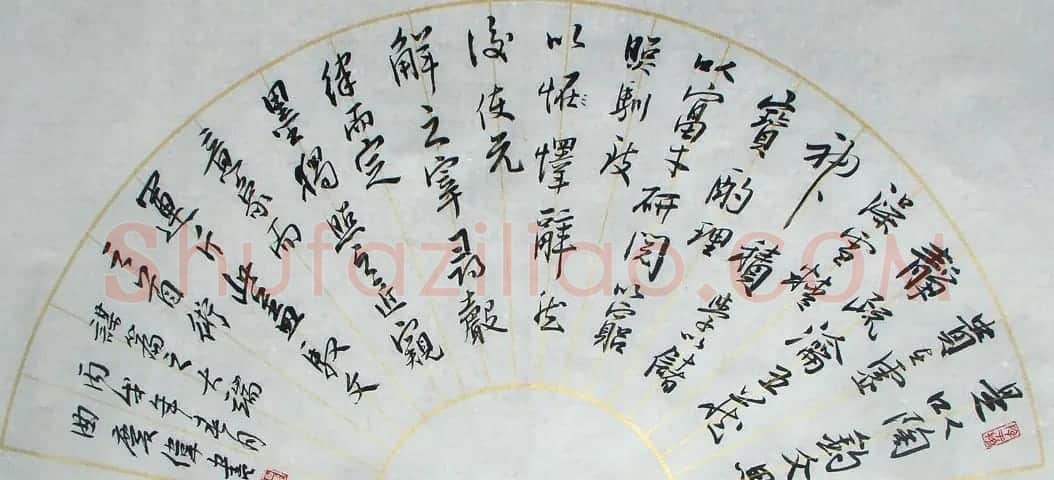 是以陶鈞文思
貴在虛
靜疏瀹五藏
澡雪精
神積學以儲
寶酌理
以富才研閱以窮
照馴致
以懌辭然
後使元
解之宰尋聲
律而定
墨獨照之匠窺
意象而
運斤此蓋馭文
之首術
謀篇之大端
年春月
曲書
Shufaziliao.COM